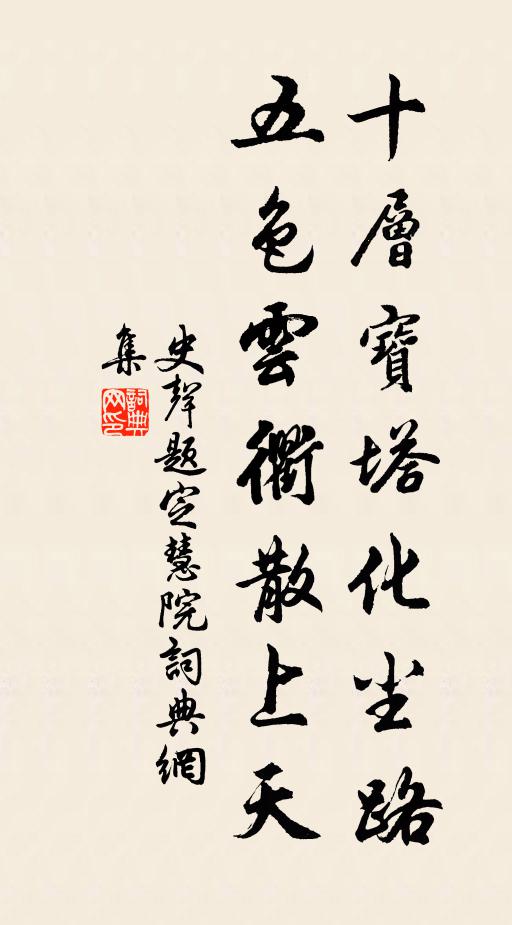 十層寶塔化尘路
五色雲衢散上天
史聲題定慧院詞典網
集
詞典
网印